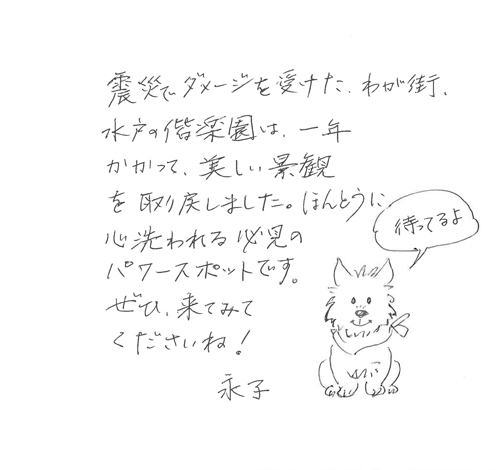 震災でダメージを受けた、わが街、
水戸の偕楽園は、一年
かかって、美しい景観
を取り戻しました。ほんとうに、
心洗われる必見の
パワースポットです。
ぜひ、来てみて
くださいね！
永子
待ってるよ